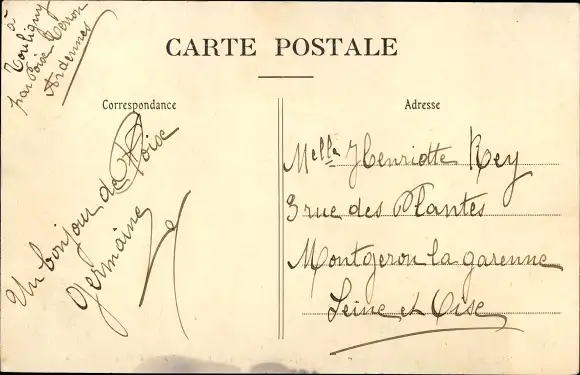 à
Touligny
par Poix-Terron
Ardennes
CARTE POSTALE
Correspondance
Un bonjour de Poix
Germaine
Adresse
Melle Henriette Rey
3 rue des Plantes
Montgeron la garenne
Seine et Oise